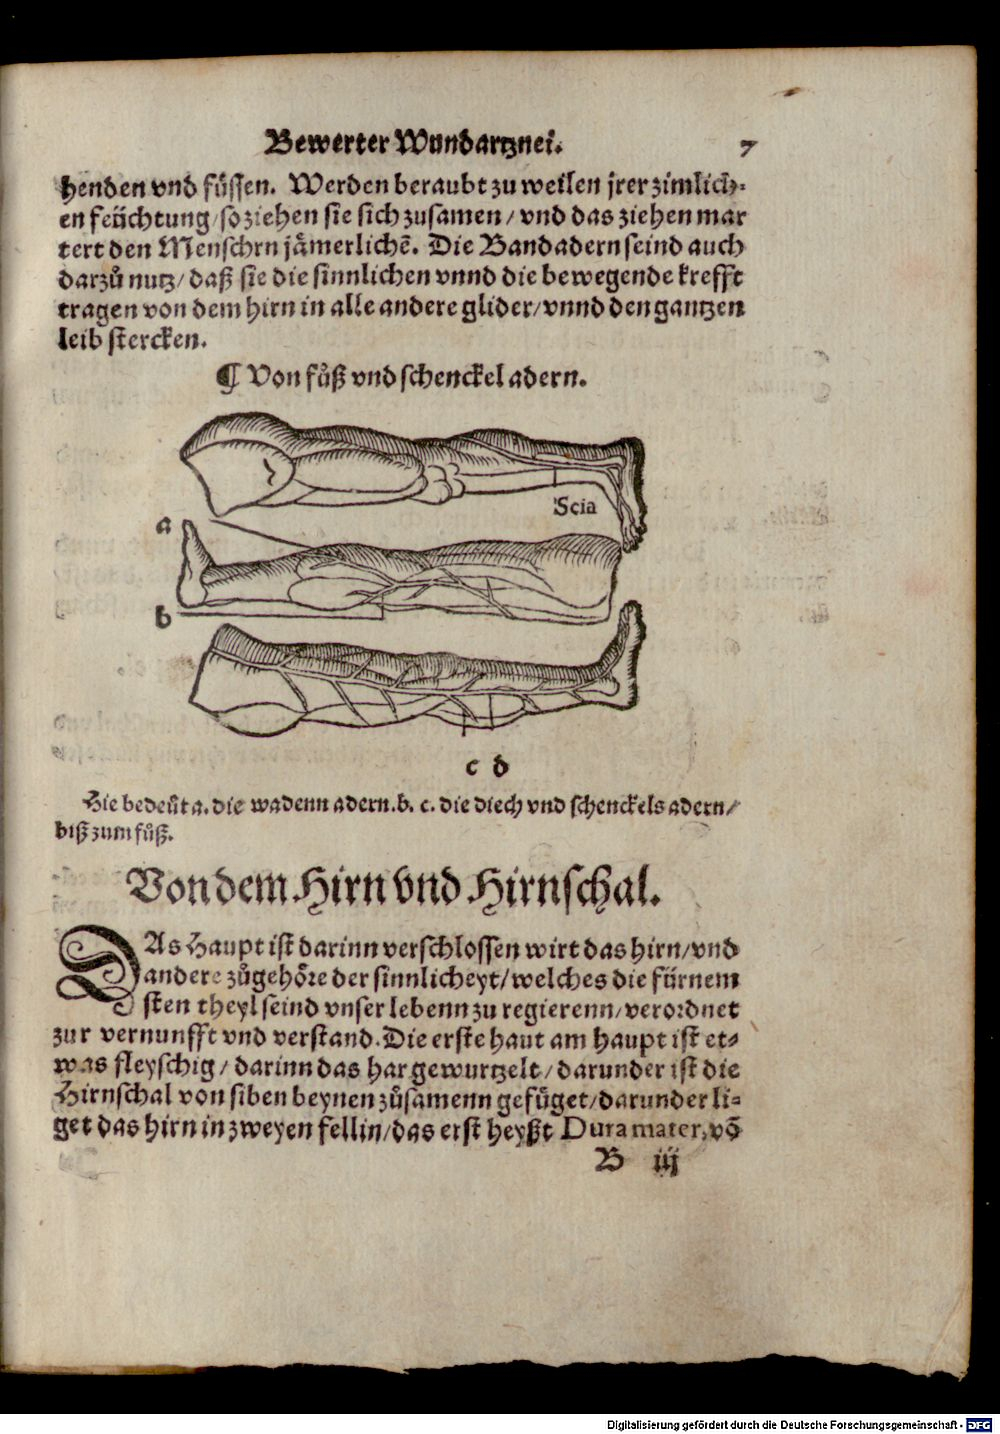 Bewerter Wundartznei. 7
henden vnd füssen. Werden beraubt zu weilen jrer zimlich⸗
en feüchtung/ so ziehen sie sich zusamen/ vnd das ziehen mar
tert den Menschrn jämerlichẽ. Die Bandadern seind auch
darzů nutz/ daß sie die sinnlichen vnnd die bewegende krefft
tragen von dem hirn in alle andere glider/ vnnd den gantzen
leib stercken.
¶ Von fůß vnd schenckel adern.
Scia
a
b
c d
Hie bedeüt a. die wadenn adern. b. c. die diech vnd schenckels adern/
biß zum fůß.
Von dem Hirn vnd Hirnschal.
DAs Haupt ist darinn verschlossen wirt das hirn/ vnd
andere zůgehöre der sinnlicheyt/ welches die fürnem
sten theyl seind vnser lebenn zu regierenn/ verordnet
zur vernunfft vnd verstand. Die erste haut am haupt ist et⸗
was fleyschig/ darinn das har gewurtzelt/ darunder ist die
Hirnschal von siben beynen zůsamenn gefüget/ darunder li⸗
get das hirn in zweyen fellin/ das erst heyßt Dura mater, võ
B iij
Digitalisierung gefördert durch die Deutsche Forschungsgemeinschaft - DFG